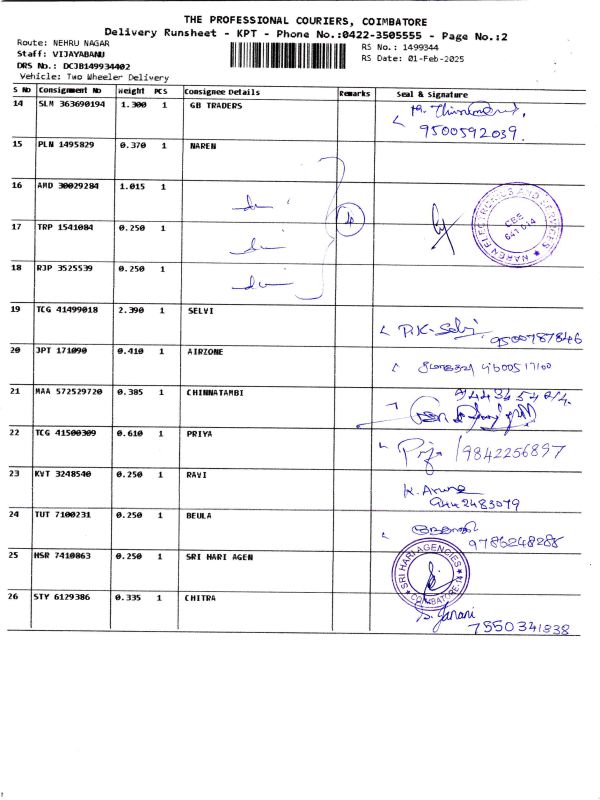 THE PROFESSIONAL COURIERS, COIMBATORE
Delivery Runsheet - KPT - Phone No.:0422-3505555 - Page No.:2
Route: NEHRU NAGAR
Staff: VIJAYABANU
DRS No.: DCJB149934402
Vehicle: Two Wheeler Delivery
RS No.: 1499344
RS Date: 01-Feb-2025
S No Consignment No Weight PCS Consignee Details Remarks Seal & Signature
14 SLM 363690194 1.300 1 GB TRADERS
9500592039.
15 PLN 1495829 0.370 1 NAREN
16 AMD 30029284 1.015 1
17 TRP 1541084 0.250 1
18 RJP 3525539 0.250 1
NAREN ELECTRONICS AND SERVICES
CBE
641 014
19 TCG 41499018 2.390 1 SELVI
P.K-Selvi 9500787846
20 JPT 171090 0.410 1 AIRZONE
21 MAA 572529720 0.385 1 CHINNATAMBI
22 TCG 41500309 0.610 1 PRIYA
Priya /9842256897
23 KVT 3248540 0.250 1 RAVI
K. Aruna
9442483079
24 TUT 7100231 0.250 1 BEULA
9786248288
25 HSR 7410863 0.250 1 SRI HARI AGEN
SRI HARI AGENCIES
COIMBATORE-14
26 STY 6129386 0.335 1 CHITRA
S. Janani
7550341838